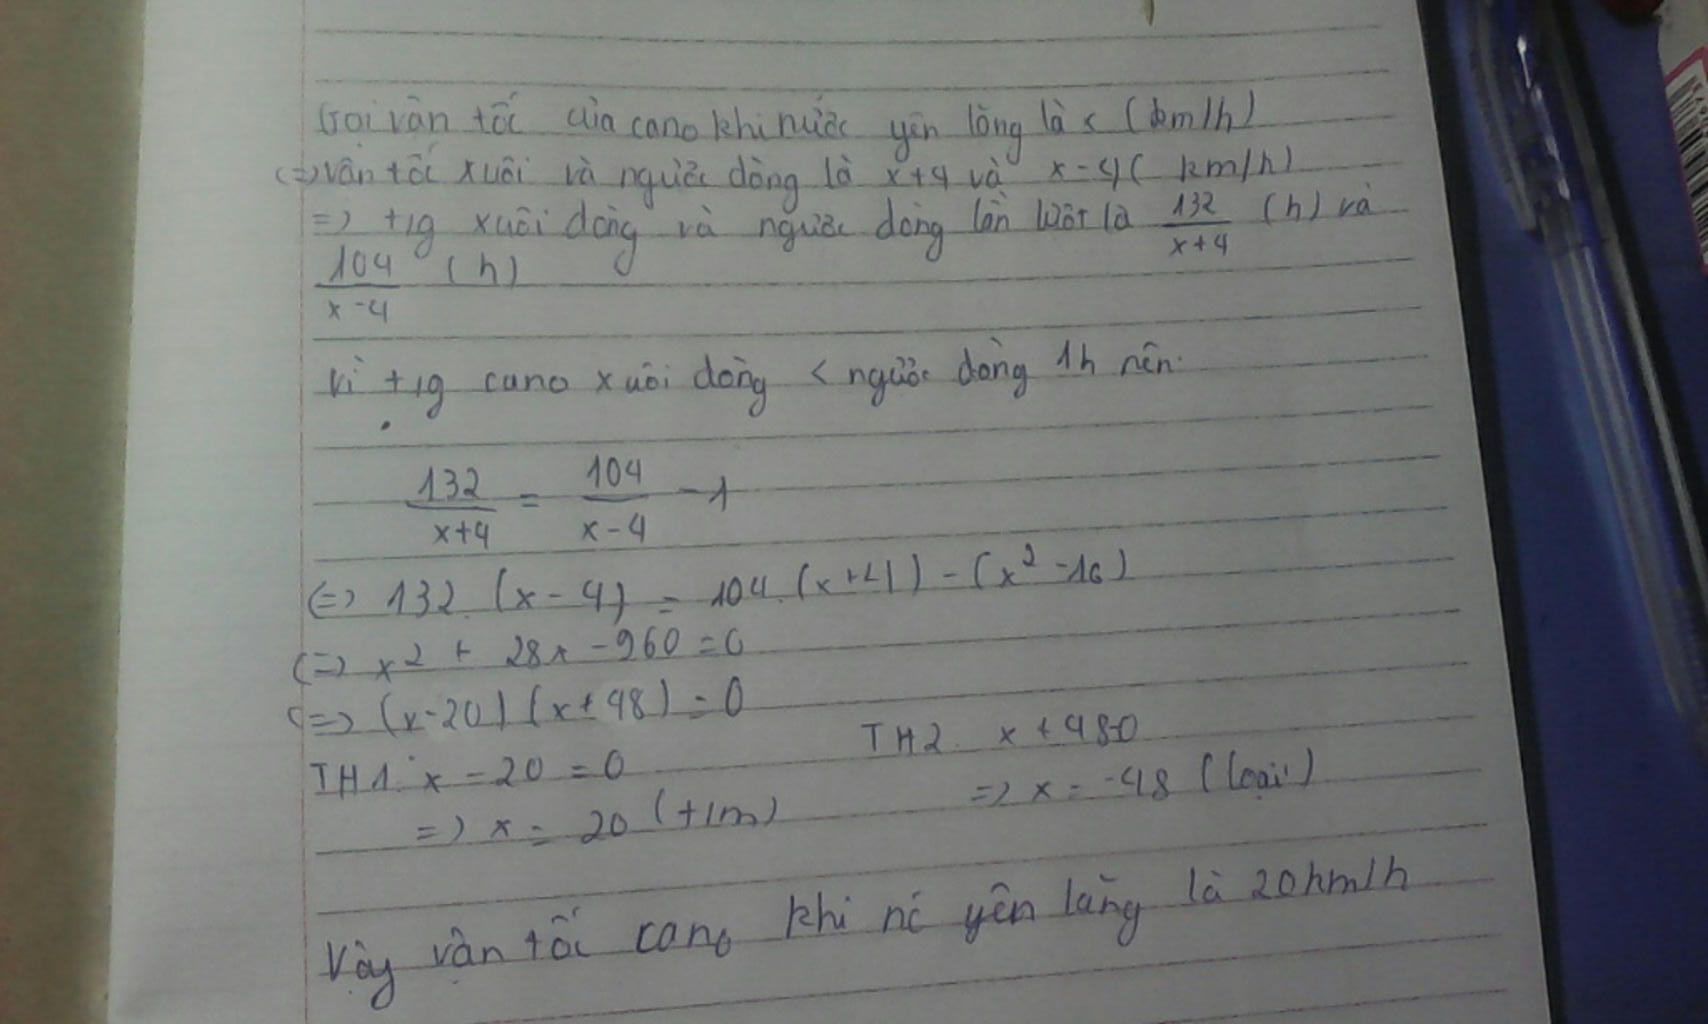 Gọi vận tốc của cano khi nước yên lặng là x (km/h)
(=) vận tốc xuôi và ngược dòng là x+4 và x-4 (km/h)
=) t1g xuôi dòng và ngược dòng lần lượt là 132/(x+4) (h) và
104/(x-4) (h)
Vì t1g cano xuôi dòng < ngược dòng 1h nên:
132/(x+4) = 104/(x-4) - 1
(=) 132.(x-4) = 104.(x+4) - (x² - 16)
(=) x² + 28x - 960 = 0
(=) (x-20)(x+48) = 0
TH1: x - 20 = 0 TH2. x + 48=0
=) x = 20 (t/m) =) x = -48 (loại)
Vậy vận tốc cano khi nc yên lặng là 20km/h